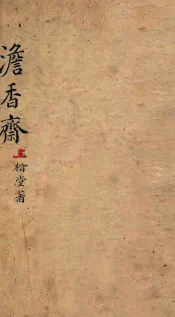 澹香齋
王楷堂著